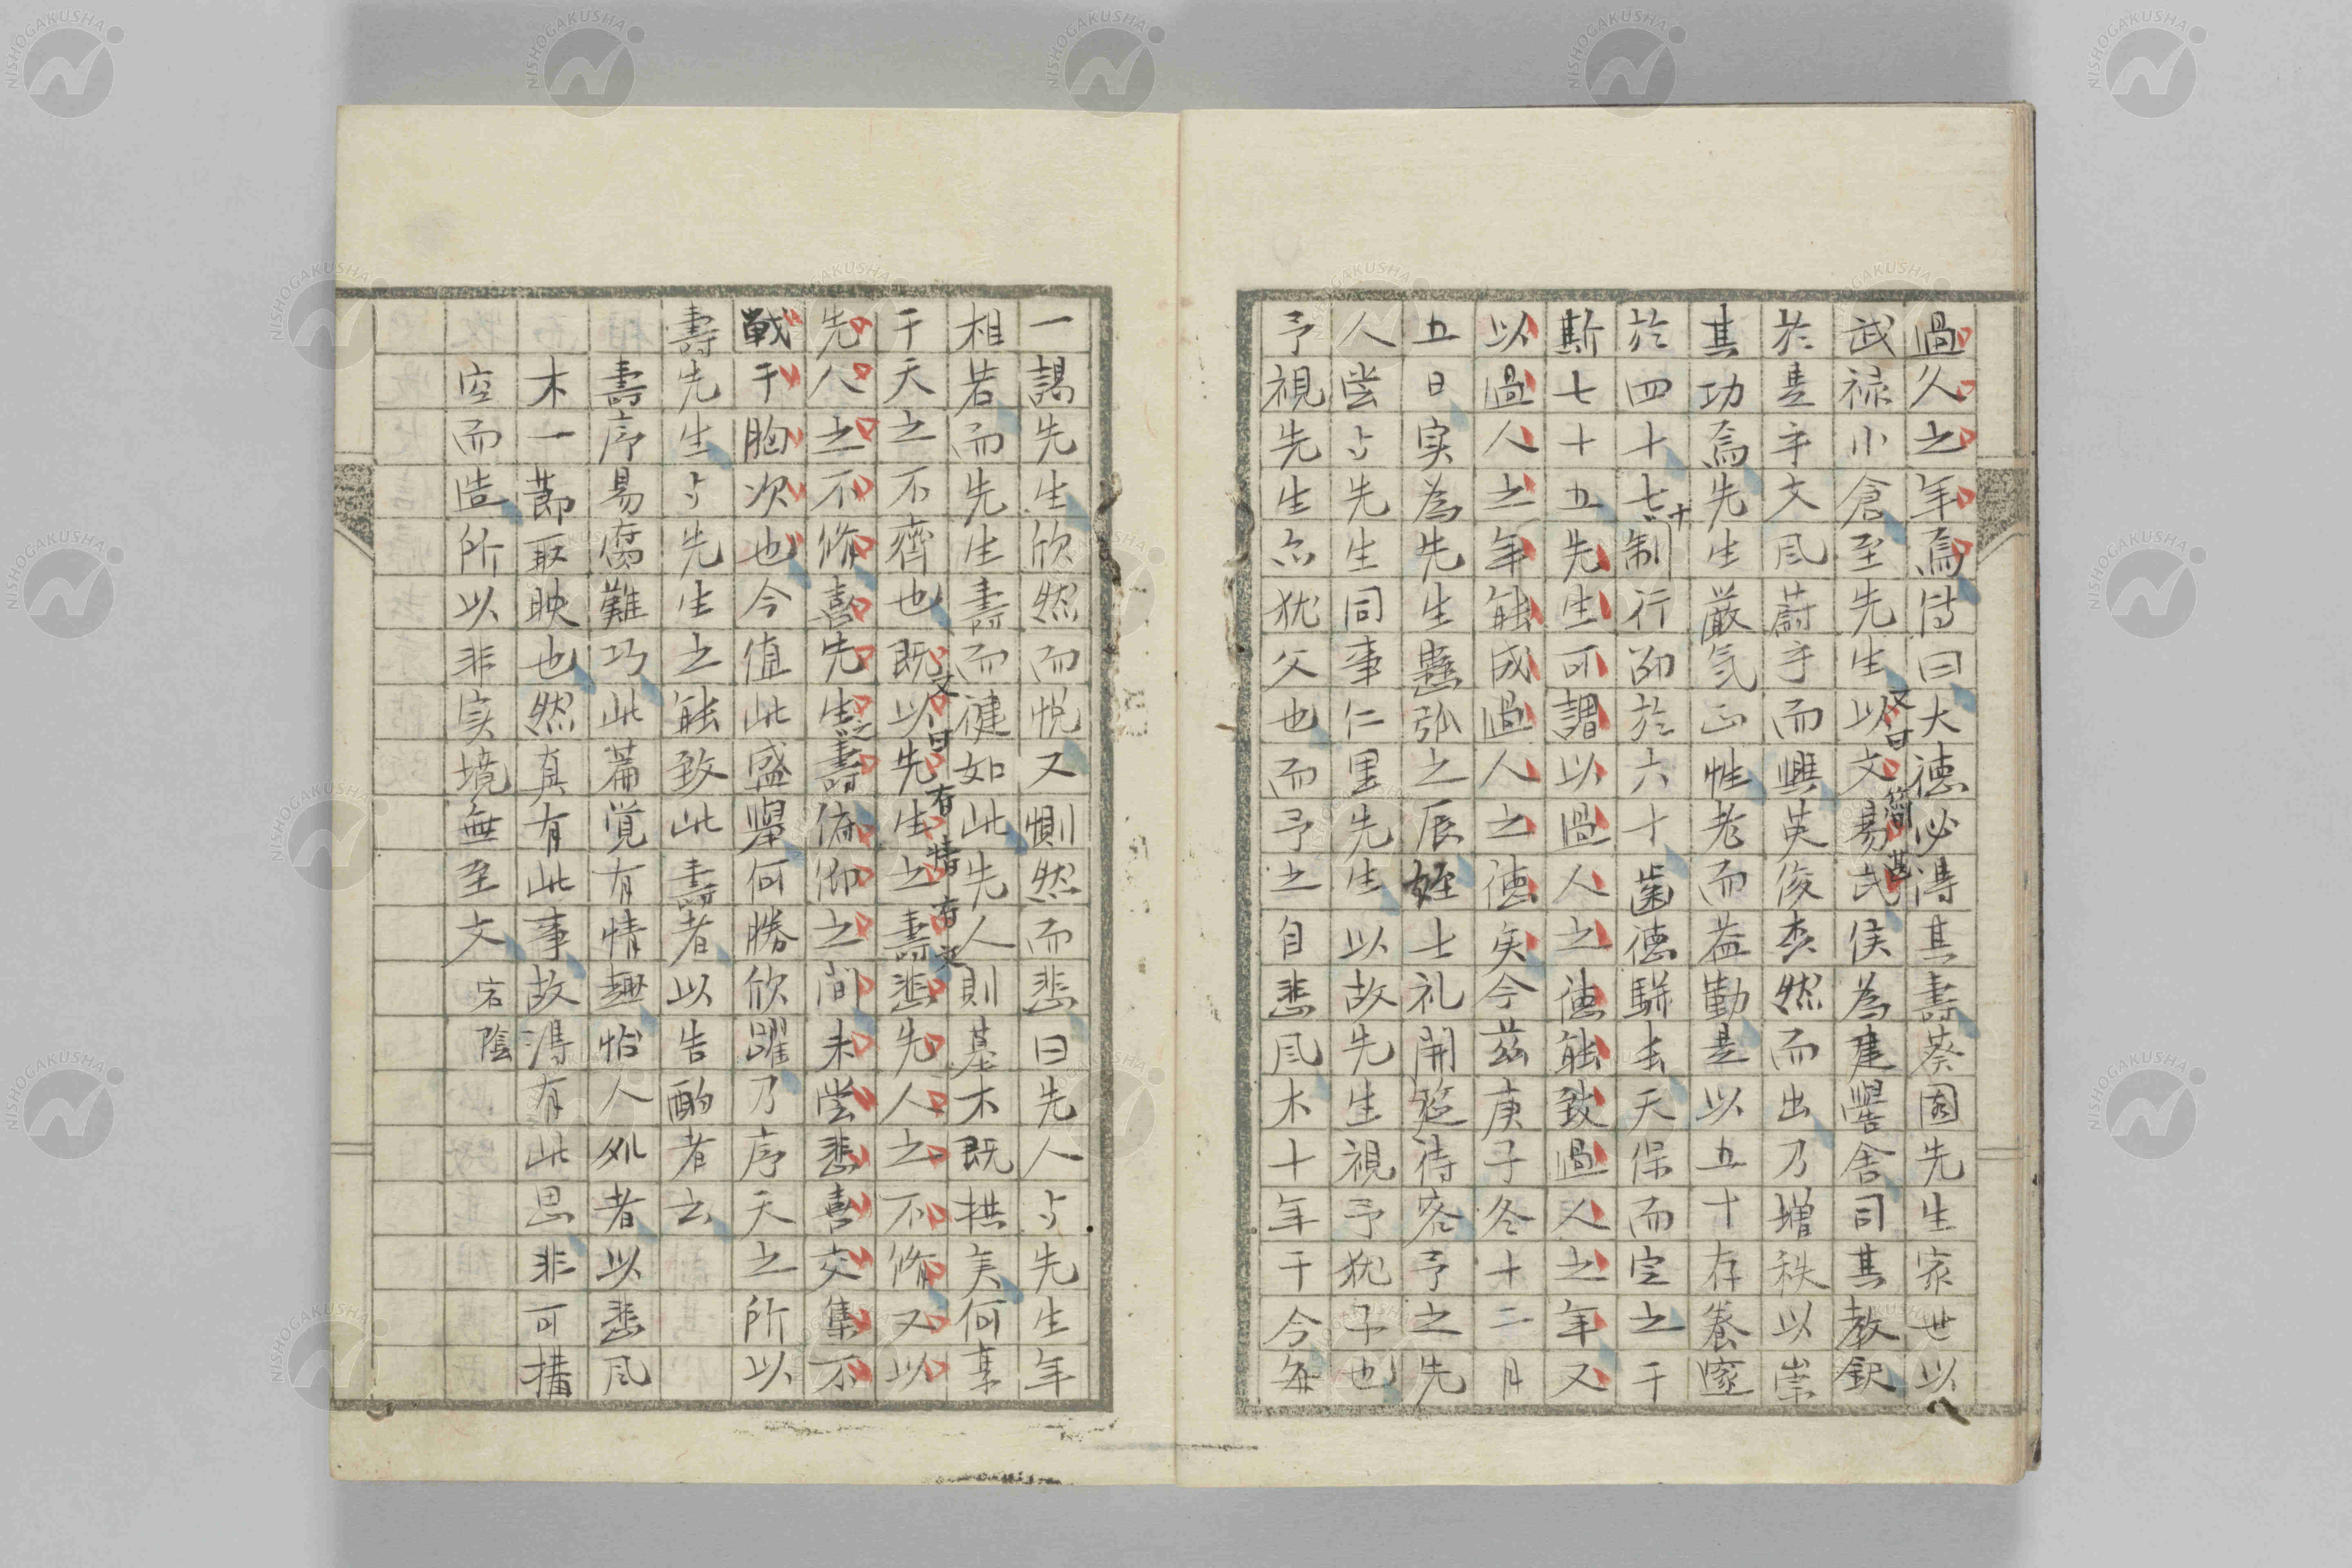 過久之年焉詩曰大徳必得其壽葵園先生家世以
武禄小倉至先生以文易武侯為建黌舎司其教釈
又曰簡甚
於是乎文風蔚乎而興英俊杰然而出乃増秩以崇
其功焉先生厳気正性老而益勤是以五十存養邃
於四十七制行卲於六十歯徳駢去天保而定之于
十
斯七十五先生可謂以過人之徳能致過人之年又
以過人之年能成過人之徳矣今茲庚子冬十二月
五日実為先生懸弧之辰姪士礼開筵待客予之先
人嘗与先生同事仁里先生以故先生視予猶子也
予視先生亦猶父也而予之自悲風木十年于今毎
一謁先生欣然而悦又惻然而悲曰先人与先生年
相若而先生壽而健如此先人則墓木既拱矣何其
于天之不齊也既以先生之壽悲先人之不脩又以
又曰有情有文
先人之不脩喜先生之壽俯仰之間未嘗悲喜交集不
戦于胸次也今値此盛擧何勝欣躍乃序天之所以
壽先生与先生之能致此壽者以告酌者云
壽序易腐難巧此篇覚有情趣怡人処者以悲風
木一節取映也然真有此事故得有此思非可搆
空而造所以非実境無至文
宕陰
NISHOGAKUSHA